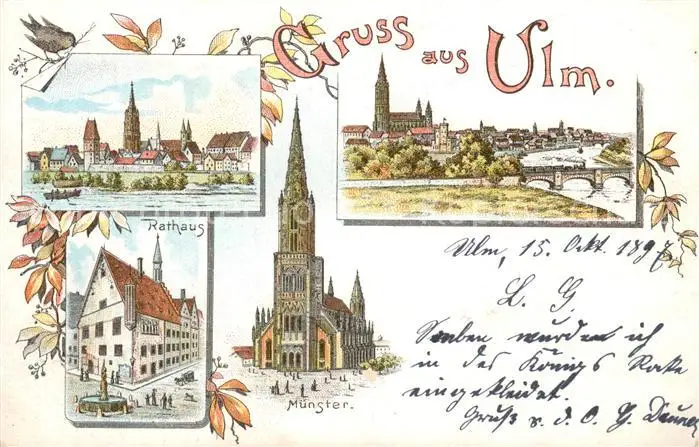 Gruss aus Ulm.
Rathaus
Münster.
Ulm, 15. Okt. 1897
L. G.
Soeben wurde ich
in des Königs Rocke
eingekleidet.
Gruß v. d. O. G.